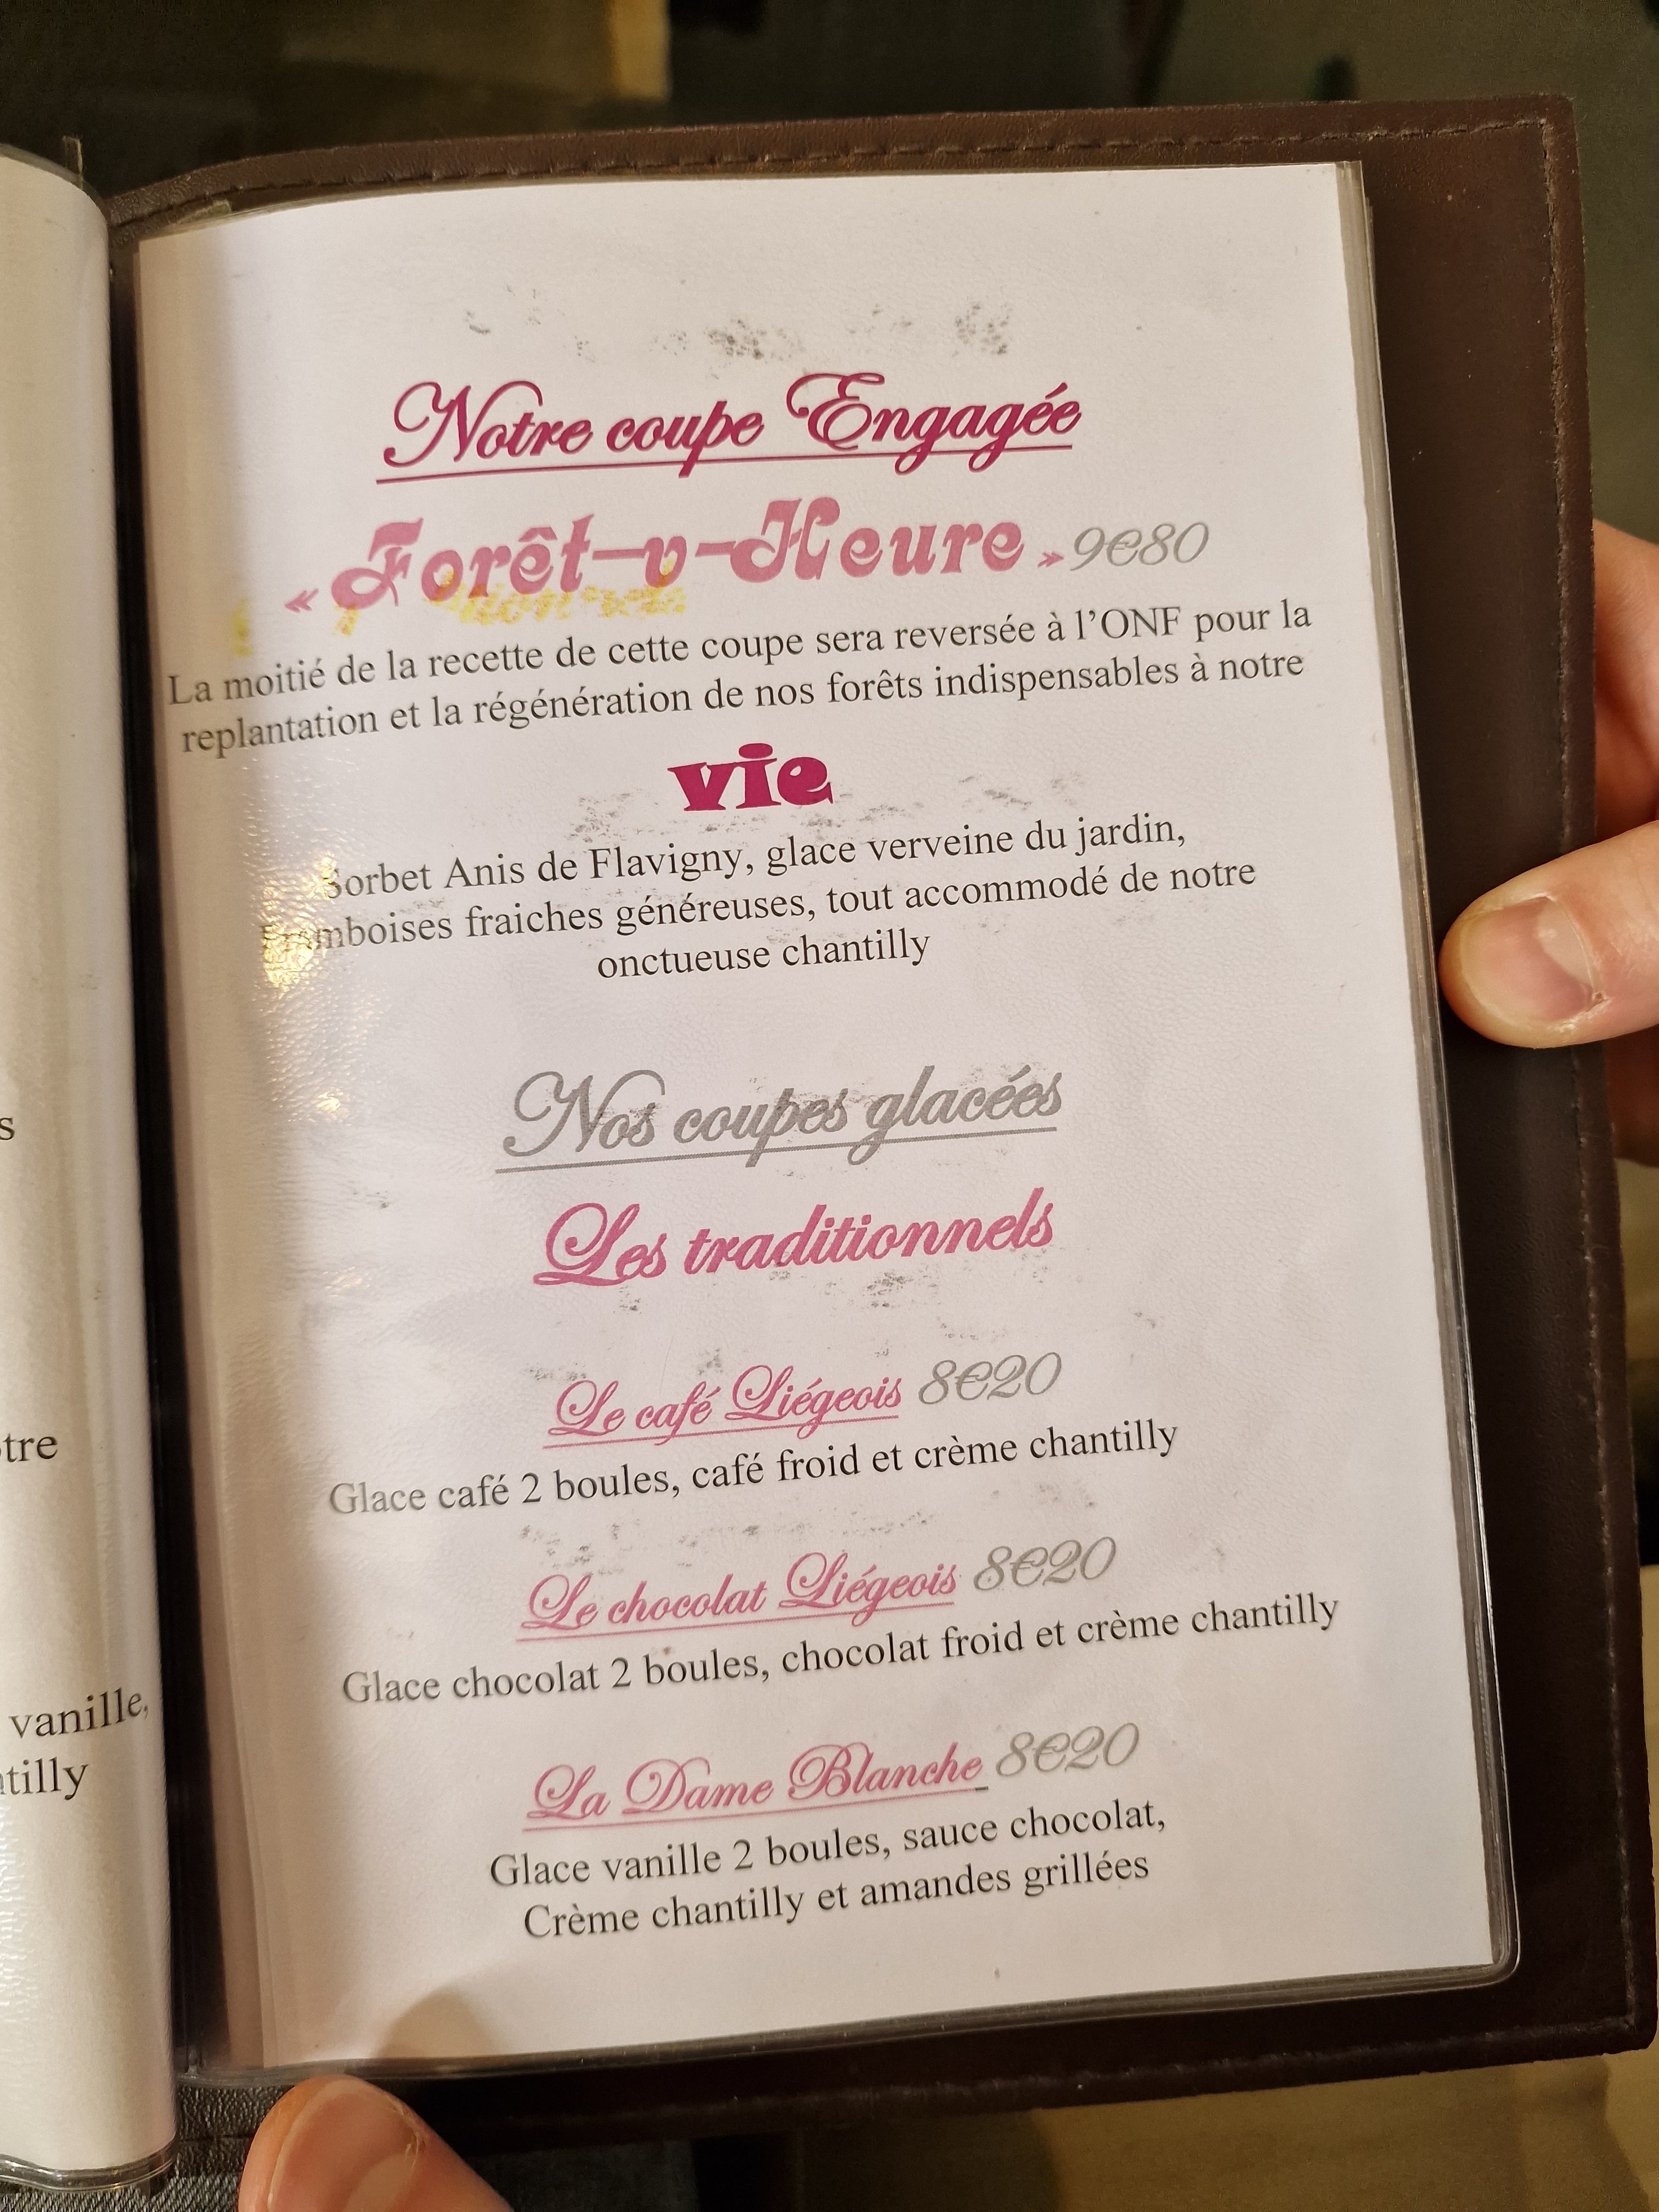 s
tre
vanille,
tilly
Notre coupe Engagée
« Forêt-v-Heure » 9€80
La moitié de la recette de cette coupe sera reversée à l'ONF pour la
replantation et la régénération de nos forêts indispensables à notre
vie
Sorbet Anis de Flavigny, glace verveine du jardin,
Framboises fraiches généreuses, tout accommodé de notre
onctueuse chantilly
Nos coupes glacées
Les traditionnels
Le café Liégeois 8€20
Glace café 2 boules, café froid et crème chantilly
Le chocolat Liégeois 8€20
Glace chocolat 2 boules, chocolat froid et crème chantilly
La Dame Blanche 8€20
Glace vanille 2 boules, sauce chocolat,
Crème chantilly et amandes grillées